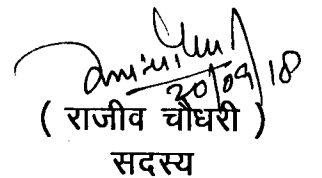 20/09/18
( राजीव चौधरी )
सदस्य